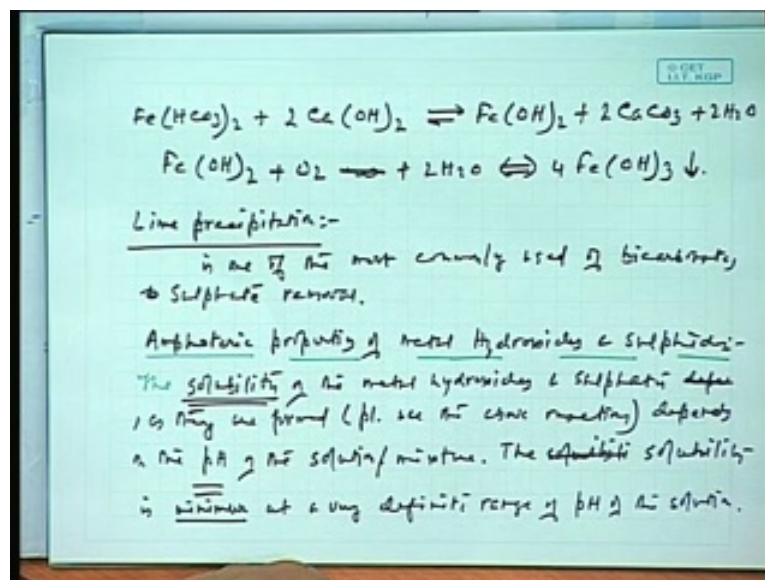 © CET
I.I.T. KGP
Fe(HCO3)2 + 2 Ca(OH)2 ⇌ Fe(OH)2 + 2CaCO3 + 2H2O
Fe(OH)2 + O2 + 2H2O ⇔ 4 Fe(OH)3 ↓.
Lime precipitation:-
is one of the most commonly used of bicarbonates,
& Sulphate removal.
Amphoteric properties of metal Hydroxides & Sulphides:-
The solubility of the metal hydroxides & Sulphates
, as they are formed (pl. see the above reactions) depends
on the pH of the solution/mixture. The solubility
is minimum at a very definite range of pH of the solution.